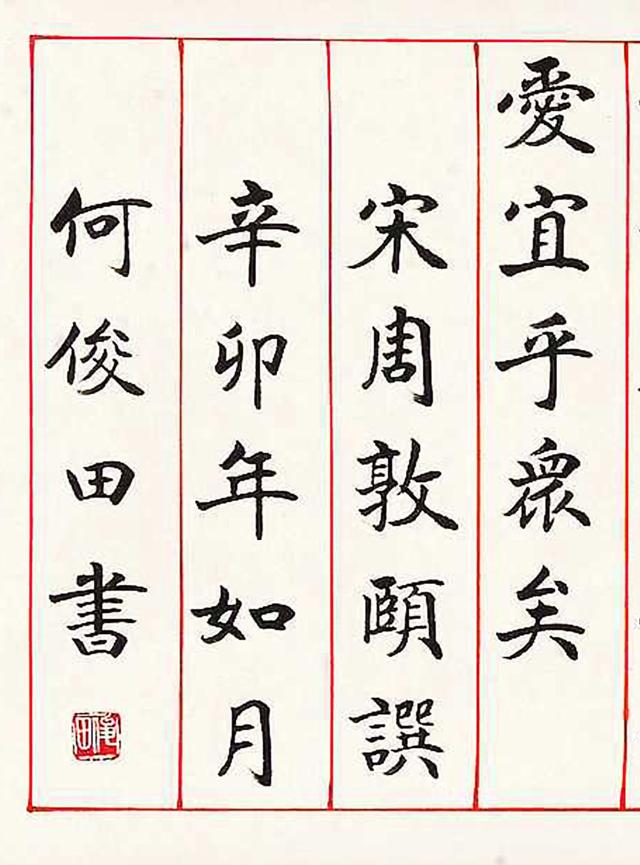 愛宜乎眾矣
宋周敦頤譔
辛卯年如月
何俊田書